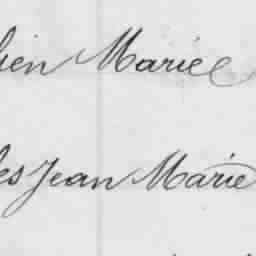 ien Marie
es Jean Marie